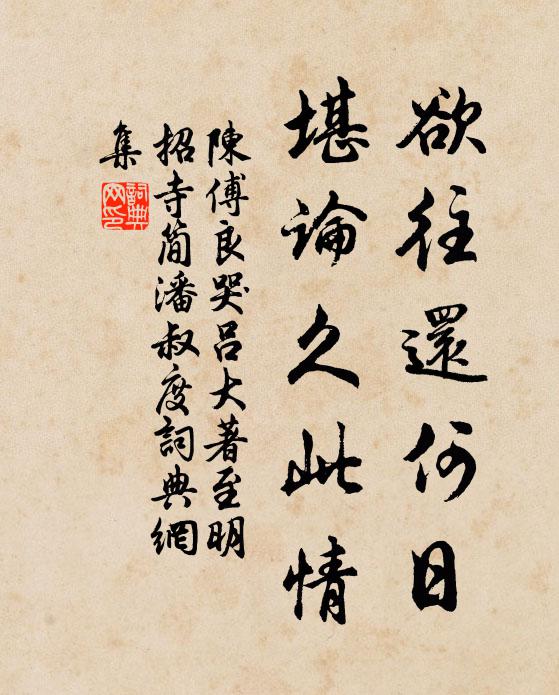 欲往還何日
堪論久此情
陳傅良哭呂大著至明
招寺簡潘叔度詞典網
集
詞典网印